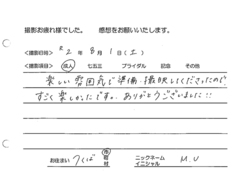 撮影お疲れ様でした。 感想をお願いいたします。
<撮影日時> R2年8月1日(土)
<撮影項目> 成人 七五三 ブライダル 記念 その他
楽しい雰囲気で準備・撮影してくださったので
すごく楽しかったです。ありがとうございました!!
お住まい つくば 市 町 村 ニックネーム イニシャル M.U